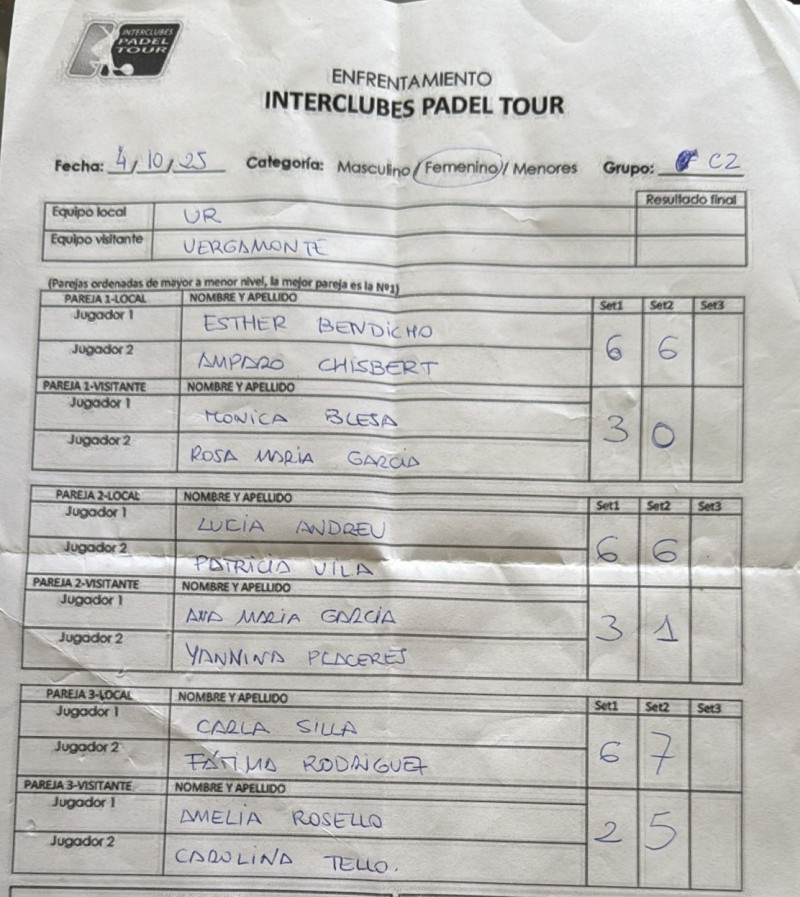 INTERCLUBES
PADEL
TOUR
ENFRENTAMIENTO
INTERCLUBES PADEL TOUR
Fecha: 4/10/25 Categoría: Masculino / Femenino / Menores Grupo: C2
Resultado final
Equipo local UR
Equipo visitante VERGAMONTE
(Parejas ordenadas de mayor a menor nivel, la mejor pareja es la Nº1)
PAREJA 1-LOCAL NOMBRE Y APELLIDO Set1 Set2 Set3
Jugador 1 ESTHER BENDICHO
Jugador 2 AMPARO CHISBERT
6 6
PAREJA 1-VISITANTE NOMBRE Y APELLIDO
Jugador 1 MONICA BLESA
Jugador 2 ROSA MARIA GARCÍA
3 0
PAREJA 2-LOCAL NOMBRE Y APELLIDO Set1 Set2 Set3
Jugador 1 LUCIA ANDREU
Jugador 2 PATRICIA VILA
6 6
PAREJA 2-VISITANTE NOMBRE Y APELLIDO
Jugador 1 ANA MARIA GARCÍA
Jugador 2 YANNINA PLACERES
3 1
PAREJA 3-LOCAL NOMBRE Y APELLIDO Set1 Set2 Set3
Jugador 1 CARLA SILLA
Jugador 2 FÁTIMA RODRIGUEZ
6 7
PAREJA 3-VISITANTE NOMBRE Y APELLIDO
Jugador 1 AMELIA ROSELLO
Jugador 2 CAROLINA TELLO.
2 5